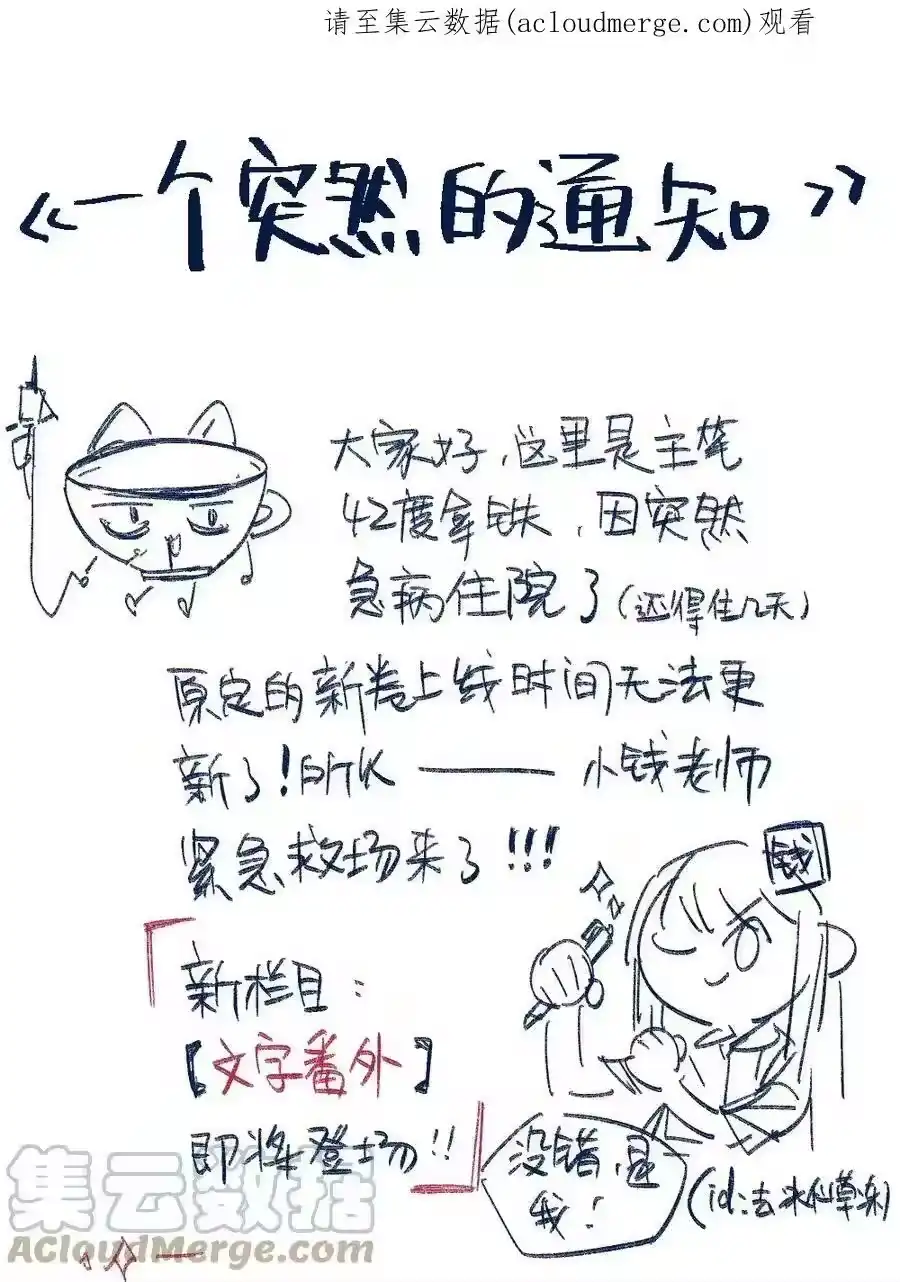 请至集云数据(acloudmerge.com)观看
《一个突然的通知》
大家好,这里是主笔
42度拿铁,因突然
急病住院了(还得住几天)
原定的新卷上线时间无法更
新了!所以——小钱老师
紧急救场来了!!!
钱
「新栏目:
【文字番外】
即将登场!!」
没错,是
我!
(id:去冰仙草冻)
集云数据
ACloudMerge.com